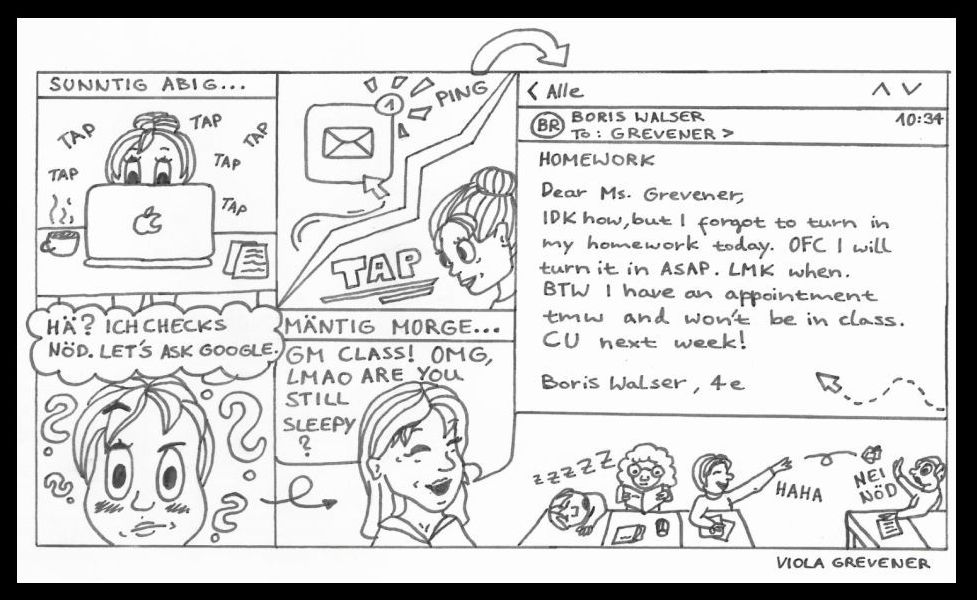 SUNNTIG ABIG...
TAP
TAP
TAP
TAP
TAP
TAP
PING
1
TAP
< Alle
BR
BORIS WALSER
10:34
TO: GREVENER >
HOMEWORK
Dear Ms. Grevener,
IDK how, but I forgot to turn in
my homework today. OFC I will
turn it in ASAP. LMK when.
BTW I have an appointment
tmw and won't be in class.
CU next week!
Boris Walser, 4e
HÄ? ICH CHECKS
NÖD. LET'S ASK GOOGLE.
?
?
?
?
?
MÄNTIG MORGE...
GM CLASS! OMG,
LMAO ARE YOU
STILL
SLEEPY
?
ZZZZZ
HAHA
NEI
NÖD
VIOLA GREVENER